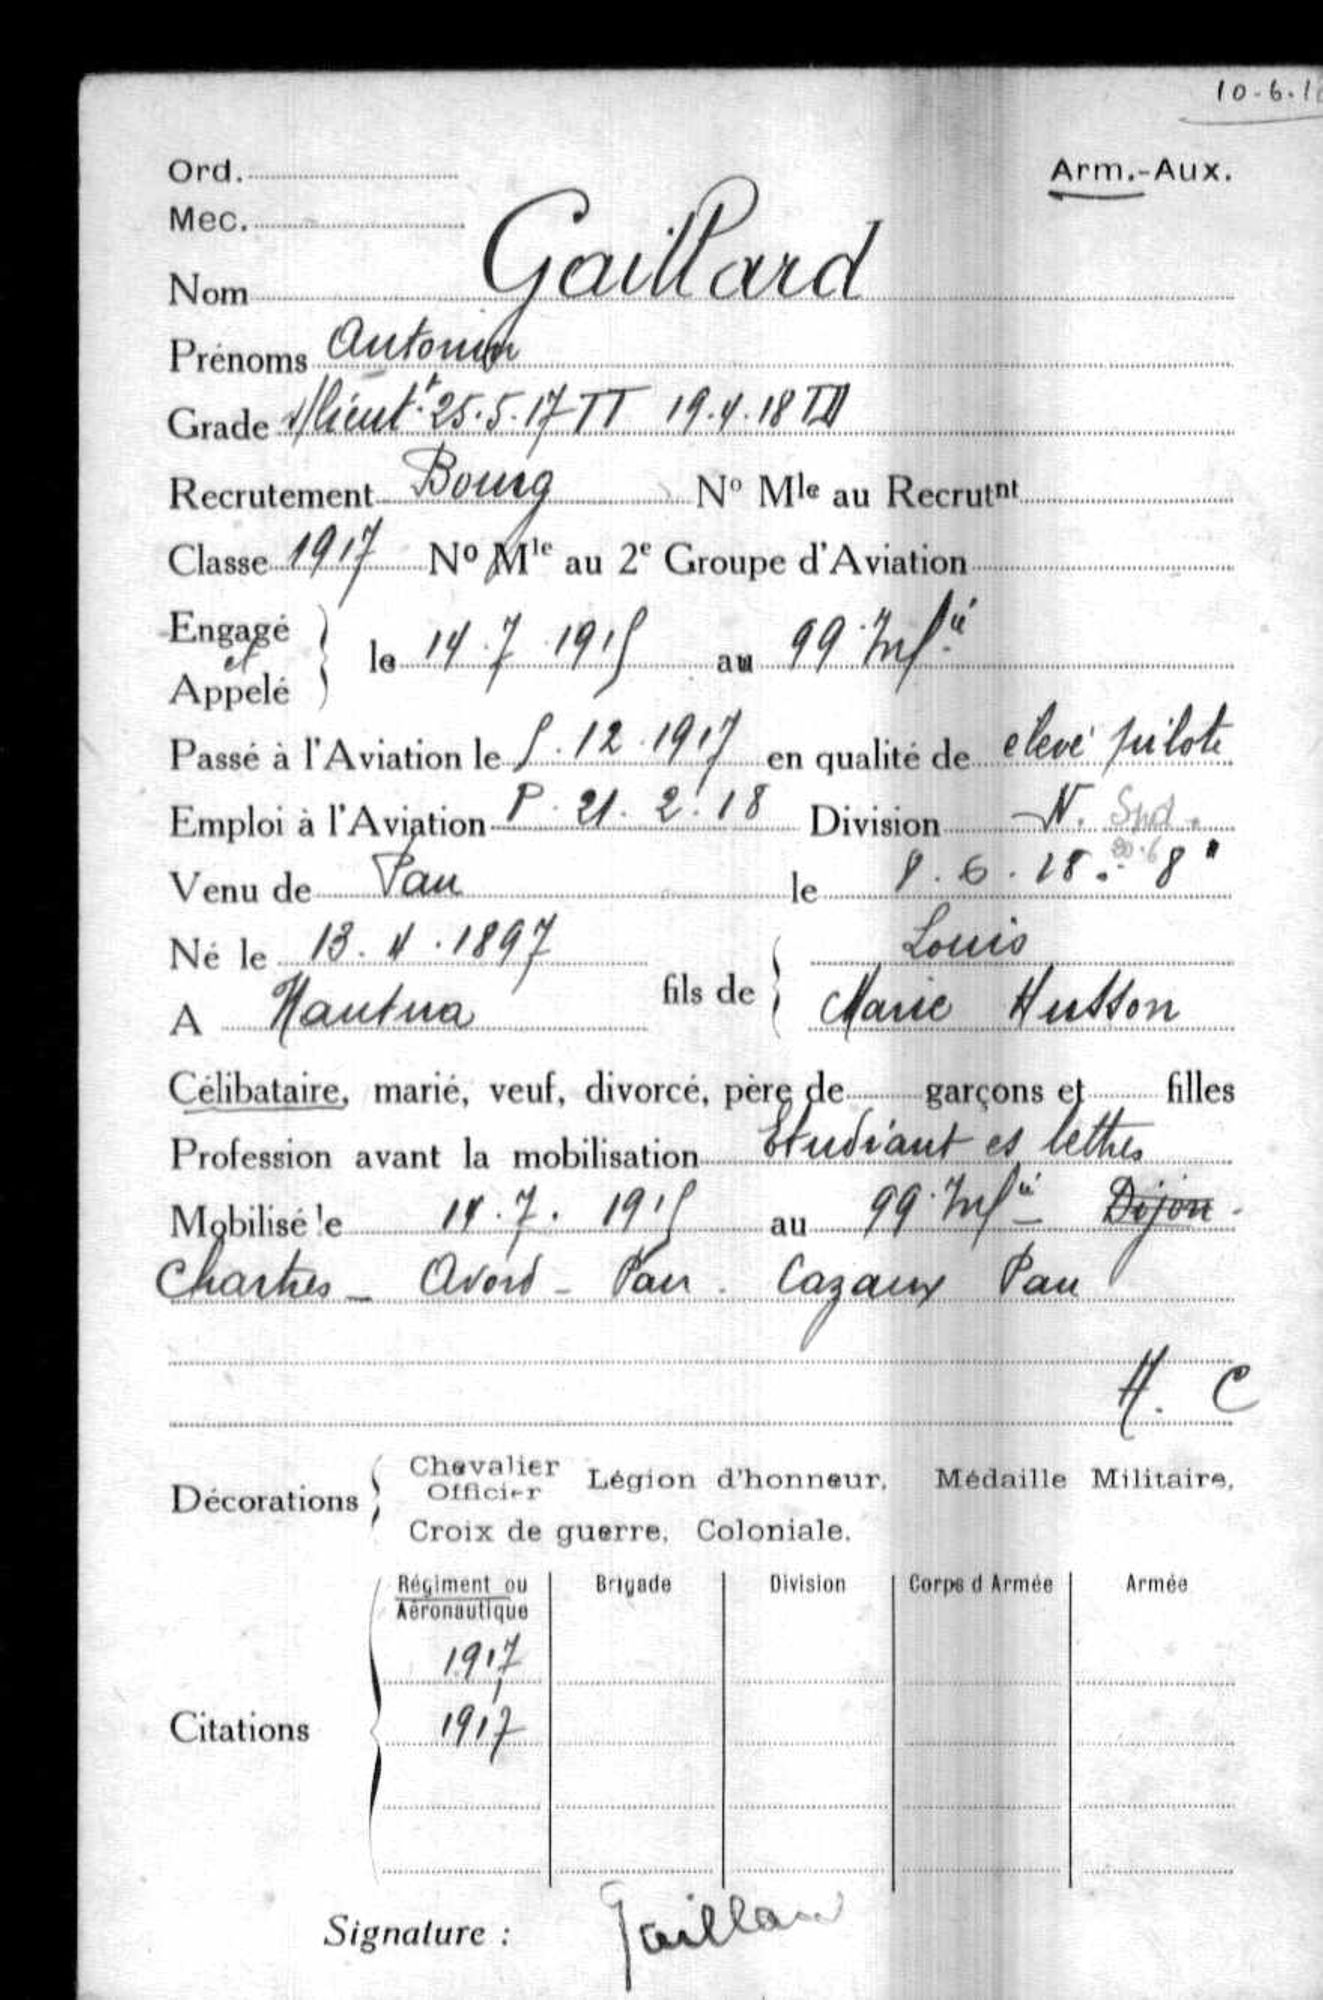 10-6.1
Ord.
Arm.-Aux.
Mec.
Nom Gaillard
Prénoms Antonin
Grade s/lieut.t 25.5.17 TT 19.4.18 TD
Recrutement Bourg No Mle au Recrutnt
Classe 1917 No Mle au 2e Groupe d'Aviation
Engagé
et
Appelé
le 14.7.1915 au 99.Infie
Passé à l'Aviation le 5.12.1917 en qualité de eleve pilote
Emploi à l'Aviation P. 21.2.18 Division N. Spd.
20.6
Venu de Pau le 8.6.18. 8"
Né le 13.4.1897
A Nantua
fils de
Louis
Marie Husson
Célibataire, marié, veuf, divorcé, père de garçons et filles
Profession avant la mobilisation Etudiant es lettres
Mobilisé le 14.7.1915 au 99.Infie Dijon -
Chartres - Avord - Pau. Cazaux Pau
H. C
Décorations
Chevalier
Officier
Légion d'honneur, Médaille Militaire,
Croix de guerre, Coloniale.
Citations
Régiment ou
Aéronautique
Brigade Division Corps d'Armée Armée
1917
1917
Signature : Gaillard